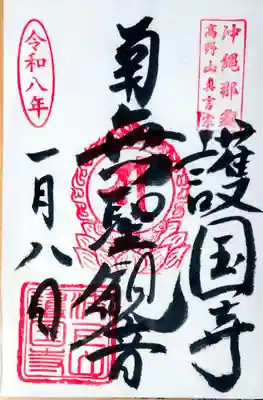 沖縄那覇
高野山真言宗
護国寺
南無聖観音
令和八年
一月八日